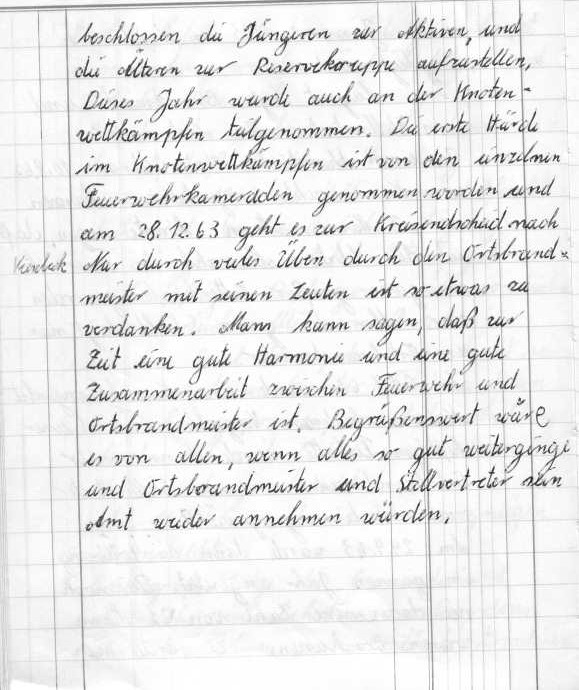 beschlossen die Jüngeren zur Aktiven, und
die Älteren zur Reservekgruppe aufzustellen.
Dieses Jahr wurde auch an der Knoten-
wettkämpfen teilgenommen. Die erste Hürde
im Knotenwettkämpfen ist von den einzelnen
Feuerwehrkameraden genommen worden und
am 28.12.63 geht es zur Kreisendscheid nach
Nur durch vieles Üben durch den Ortsbrand-
meister mit seinen Leuten ist so etwas zu
verdanken. Mann kann sagen, daß zur
Zeit eine gute Harmonie und eine gute
Zusammenarbeit zwischen Feuerwehr und
Ortsbrandmeister ist. Begrüßenswert wäre
es von allen, wenn alles so gut weitergeinge
und Ortsbrandmeister und Stellvertreter sein
Amt wieder annehmen würden.